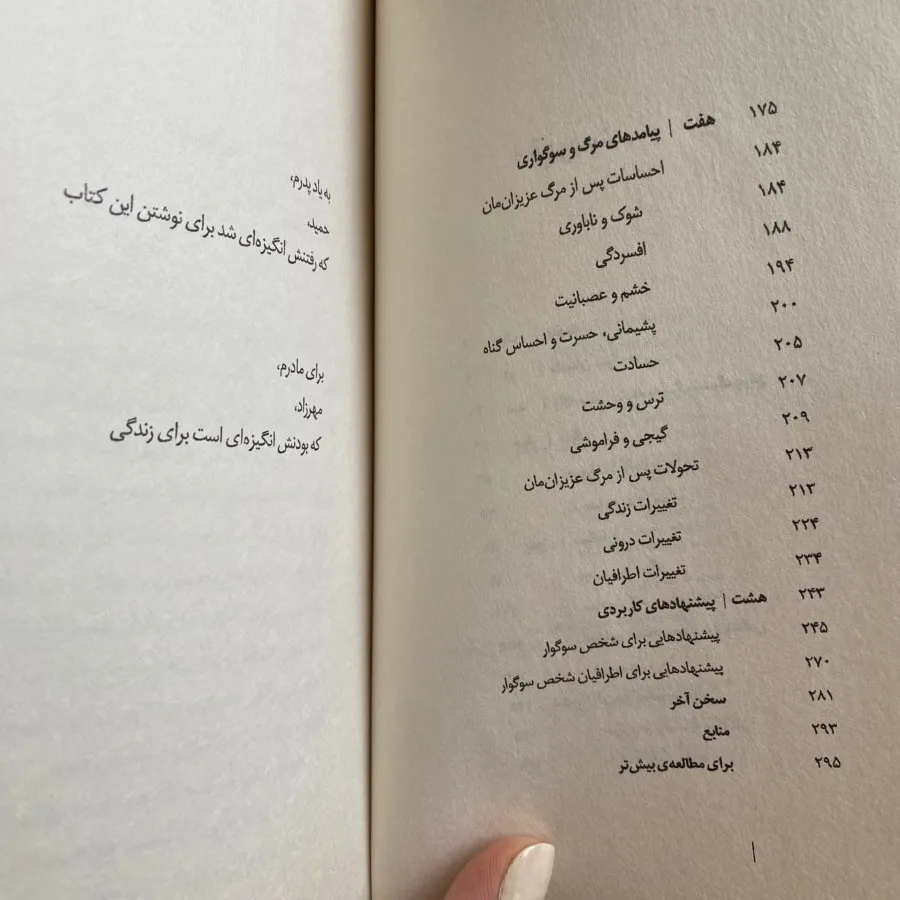 ۱۷۵ هفت | پیامدهای مرگ و سوگواری
۱۸۴ احساسات پس از مرگ عزیزان‌مان
۱۸۴ شوک و ناباوری
۱۸۸ افسردگی
۱۹۴ خشم و عصبانیت
۲۰۰ پشیمانی، حسرت و احساس گناه
۲۰۵ حسادت
۲۰۷ ترس و وحشت
۲۰۹ گیجی و فراموشی
۲۱۳ تحولات پس از مرگ عزیزان‌مان
۲۱۳ تغییرات زندگی
۲۲۴ تغییرات درونی
۲۳۴ تغییرات اطرافیان
۲۴۳ هشت | پیشنهادهای کاربردی
۲۴۵ پیشنهادهایی برای شخص سوگوار
۲۷۰ پیشنهادهایی برای اطرافیان شخص سوگوار
۲۸۱ سخن آخر
۲۹۳ منابع
۲۹۵ برای مطالعه‌ی بیش‌تر
به یاد پدرم،
حمید،
که رفتنش انگیزه‌ای شد برای نوشتن این کتاب
برای مادرم،
مهرزاد،
که بودنش انگیزه‌ای است برای زندگی